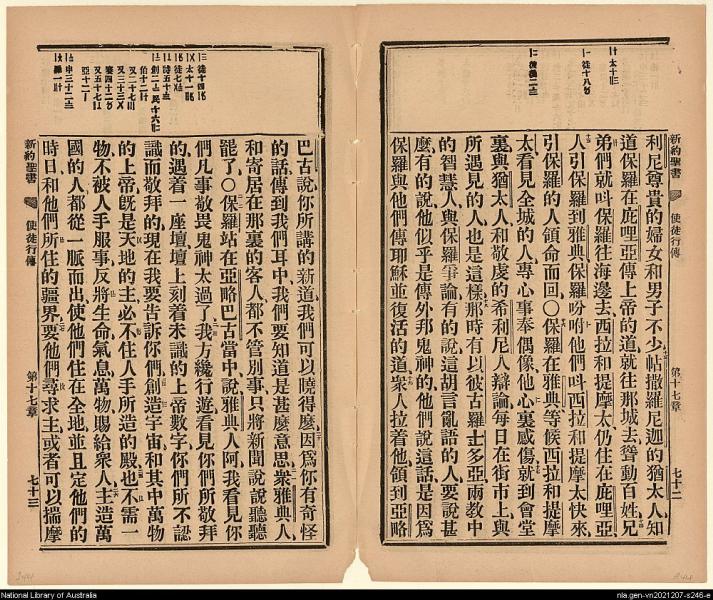 新約聖書
使徒行傳
第十七章
七十二
利尼尊貴的婦女和男子不少帖撒羅尼迦的猶太人知
道保羅在庇哩亞傳上帝的道就往那城去聳動百姓兄
弟們就呌保羅往海邊去西拉和提摩太仍住在庇哩亞
人引保羅到雅典保羅吩咐他們呌西拉和提摩太快來
引保羅的人領命而回○保羅在雅典等候西拉和提摩
太看見全城的人專心事奉偶像他心裏感傷就到會堂
裏與猶太人和敬虔的希利尼人辯論每日在街市上與
所遇見的人也是這樣那時有以彼古羅士多亞兩教中
的智慧人與保羅爭論有的說這胡言亂語的人要說甚
麽有的說他似乎是傳外邦鬼神的他們說這話是因爲
保羅與他們傳耶穌並復活的道衆人拉着他領到亞略
巴古說你所講的新道我們可以曉得麽因爲你有奇怪
的話傳到我們耳中我們要知道是甚麽意思衆雅典人
和寄居在那裏的客人都不管別事只將新聞說說聽聽
罷了○保羅站在亞略巴古當中說雅典人阿我看見你
們凡事敬畏鬼神太過了我方纔行遊看見你們所敬拜
的遇着一座壇壇上刻着未識的上帝數字你們所不認
識而敬拜的現在我要告訴你們創造宇宙和其中萬物
的上帝旣是天地的主必不住人手所造的殿也不需一
物不被人手服事反將生命氣息萬物賜給衆人主造萬
國的人都從一脈而出使他們住在全地並且定他們的
時日和他們所住的疆界要他們尋求主或者可以揣摩
新約聖書
使徒行傳
第十七章
七十三
National Library of Australia
nla.gen-vn2021207-s246-e